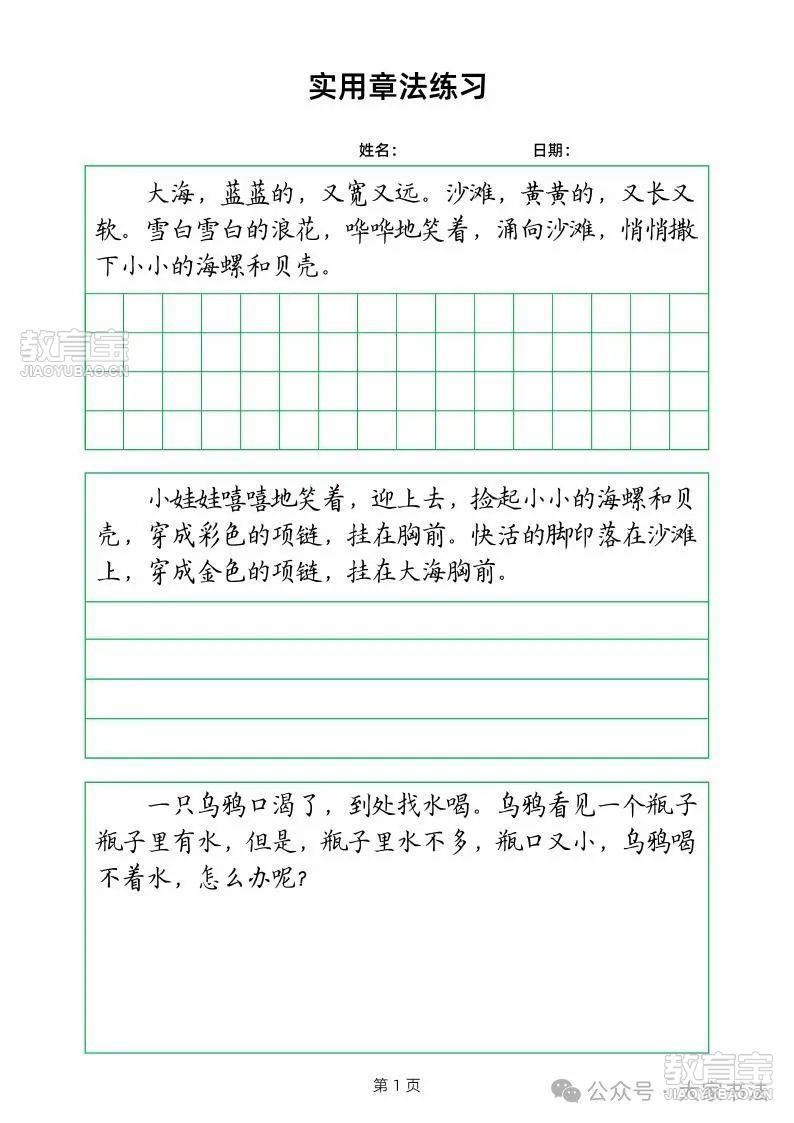 实用章法练习
姓名: 日期:
大海，蓝蓝的，又宽又远。沙滩，黄黄的，又长又
软。雪白雪白的浪花，哗哗地笑着，涌向沙滩，悄悄撒
下小小的海螺和贝壳。
教育宝
JIAOYUBAO.CN
小娃娃嘻嘻地笑着，迎上去，捡起小小的海螺和贝
壳，穿成彩色的项链，挂在胸前。快活的脚印落在沙滩
上，穿成金色的项链，挂在大海胸前。
一只乌鸦口渴了，到处找水喝。乌鸦看见一个瓶子
瓶子里有水，但是，瓶子里水不多，瓶口又小，乌鸦喝
不着水，怎么办呢?
第 1 页
教育宝
JIAOYUBAO.CN
公众号 · 大家书法